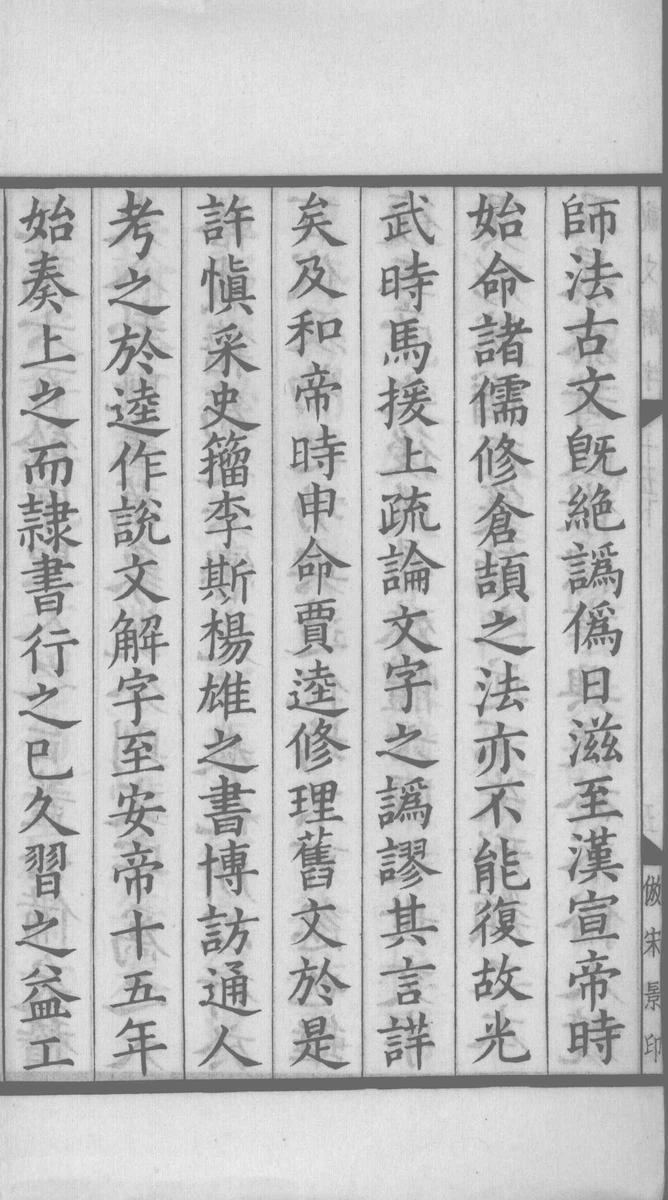 師法古文旣絶譌僞日滋至漢宣帝時
始命諸儒修倉頡之法亦不能復故光
武時馬援上疏論文字之譌謬其言詳
矣及和帝時申命賈逵修理舊文於是
許愼采史籒李斯楊雄之書博訪通人
考之於逵作說文解字至安帝十五年
始奏上之而隷書行之已久習之益工
倣宋景印